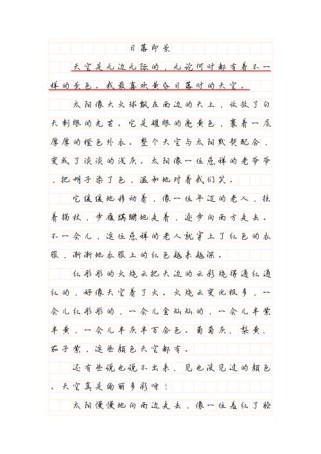 日暮即景
天空是无边无际的，无论何时都有着不一
样的景色。我最喜欢黄昏日暮时的天空。
太阳像大火球飘在西边的天上，收敛了白
天刺眼的光芒。它是耀眼的亮黄色，裹着一层
厚厚的橙色外衣。整个天空与太阳默契配合，
变成了淡淡的浅灰。太阳像一位慈祥的老爷爷
，把胡子染了色，温和地对着我们笑。
它缓缓地移动着，像一位年迈的老人，拄
着拐杖，步履蹒跚地走着，逐步向西方走去。
不一会儿，这位慈祥的老人就穿上了红色的衣
服，渐渐地衣服上的红色越来越深。
红彤彤的火烧云把大边的云彩烧得通红通
红的，好像天空着了火。火烧云变化极多，一
会儿红彤彤的，一会儿金灿灿的，一会儿半紫
半黄，一会儿半灰半百合色。葡萄灰，梨黄，
茄子紫，这些颜色天空都有。
还有些说也说不出来，见也没见过的颜色
。天空真是绚丽多彩呀！
太阳慢慢地向西边走去，像一位羞红了脸